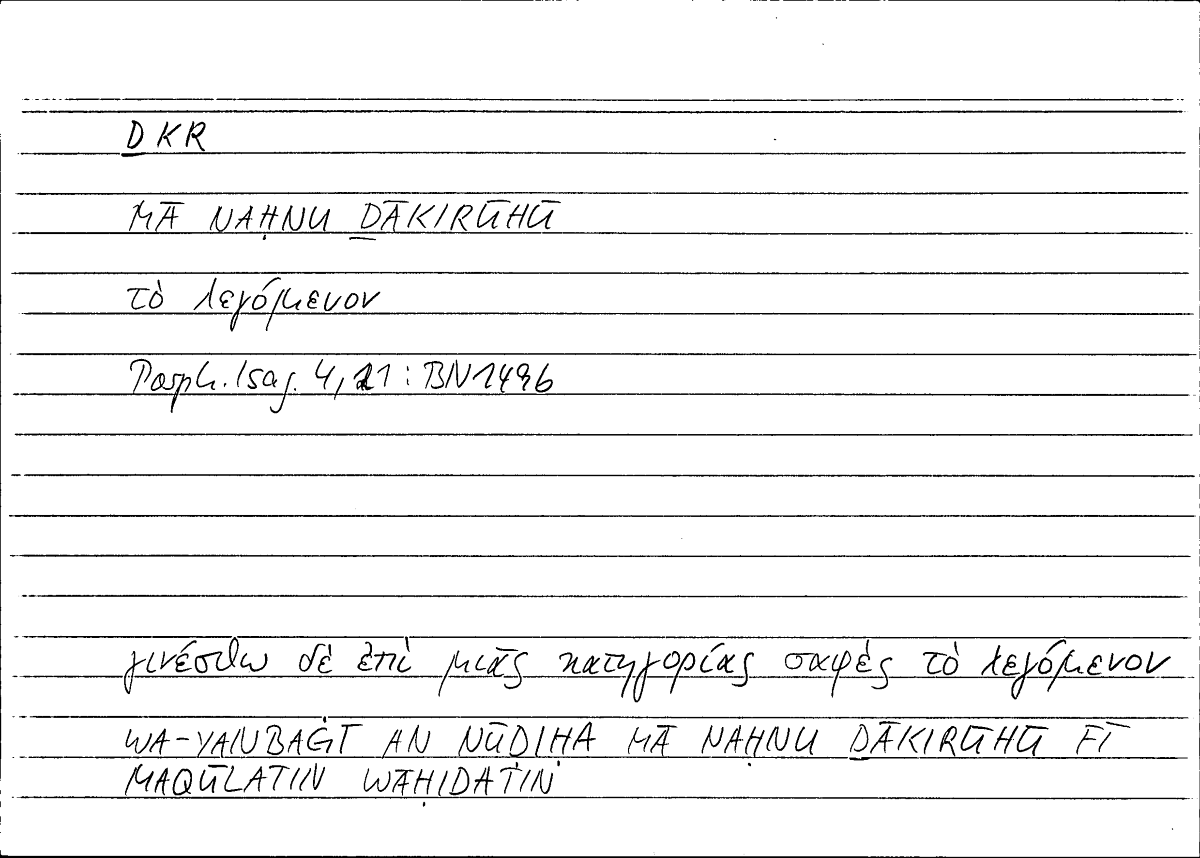 ḎKR
MĀ NAḤNU ḎĀKIRŪHŪ
τὸ λεγόμενον
Porph. Isag. 4, 21 : BN1496
γινέσθω δὲ ἐπὶ μιᾶς κατηγορίας σαφὲς τὸ λεγόμενον
WA-YANBAĠĪ AN NŪḌIḤA MĀ NAḤNU ḎĀKIRŪHŪ FĪ
MAQŪLATIN WĀḤIDATIN